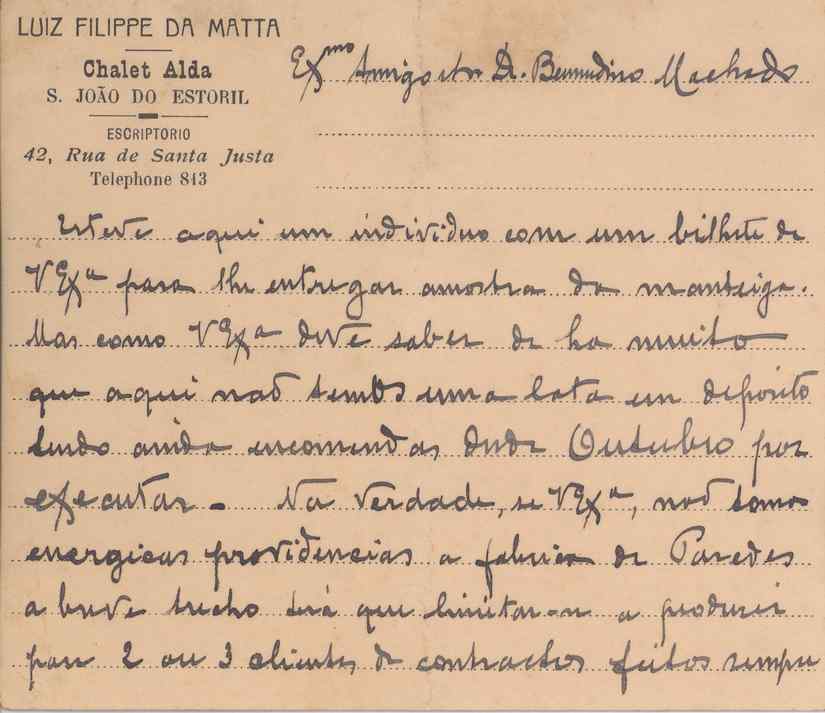 LUIZ FILIPPE DA MATTA
Chalet Alda
S. JOÃO DO ESTORIL
ESCRIPTORIO
42, Rua de Santa Justa
Telephone 813
Exmo Amigo e Snr Dr. Bernardino Machado
Esteve aqui um individuo com um bilhete de
V Exa para lhe entregar amostra da manteiga.
Mas como V Exa deve saber de ha muito
que aqui não temos uma lata em deposito
tendo ainda encomendas desde Outubro por
executar. Na verdade, se V Exa, não toma
energicas providencias a fabrica de Paredes
a breve trecho terá que limitar-se a produzir
para 2 ou 3 clientes de contractos feitos sempre